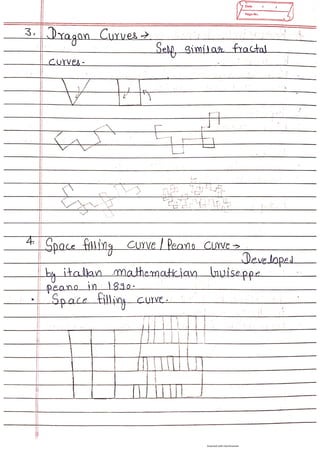 Date
Page No.
3. Dragon Curves →
Self similar fractal
curves.
4. Space filling curve / Peano curve →
Developed
by italian mathematician Guiseppe
peano in 1890.
• Space filling curve.